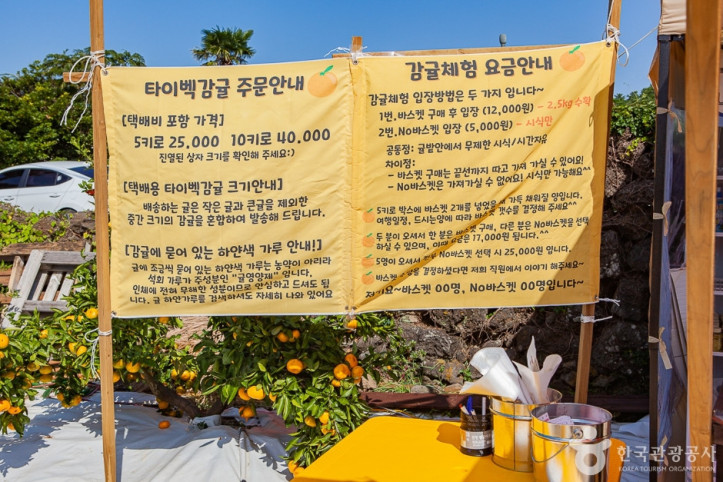 타이벡감귤 주문안내
[택배비 포함 가격]
5키로 25.000 10키로 40.000
진열된 상자 크기를 확인해 주세요:)
[택배용 타이벡감귤 크기안내]
배송하는 귤은 작은 귤과 큰귤을 제외한
중간 크기의 감귤을 혼합하여 발송해 드립니다.
[감귤에 묻어 있는 하얀색 가루 안내!]
귤에 조금씩 묻어 있는 하얀색 가루는 농약이 아니라
석회 가루가 주성분인 "귤영양제" 입니다.
인체에 전혀 무해한 성분이므로 안심하고 드셔도 됩니다.
귤 하얀가루를 검색하셔도 자세히 나와 있어요
감귤체험 요금안내
감귤체험 입장방법은 두 가지 입니다~
1번.바스켓 구매 후 입장 (12,000원) - 2,5kg 수확
2번.No바스켓 입장 (5,000원) - 시식만
공통점: 귤밭안에서 무제한 시식/시간자유
차이점:
- 바스켓 구매는 끝선까지 따고 가져 가실 수 있어요!
- No바스켓은 가져가실 수 없어요! 시식만 가능해요!
5키로 박스에 바스켓 2개를 넣었을 때 가득 채워질 양입니다.
여행일정, 드시는양에 따라 바스켓 갯수를 결정해 주세요^^
두 분이 오셔서 한 분은 바스켓 구매, 다른 분은 No바스켓을 선택
하실 수 있으며, 이때 17,000원 됩니다.^^
5명이 오셔서 No바스켓 선택 시 25,000원 입니다.
바스켓 결정하셨다면 저희 직원에서 이야기 해주세요~
바스켓 00명, No바스켓 00명입니다!
한국관광공사
KOREA TOURISM ORGANIZATION